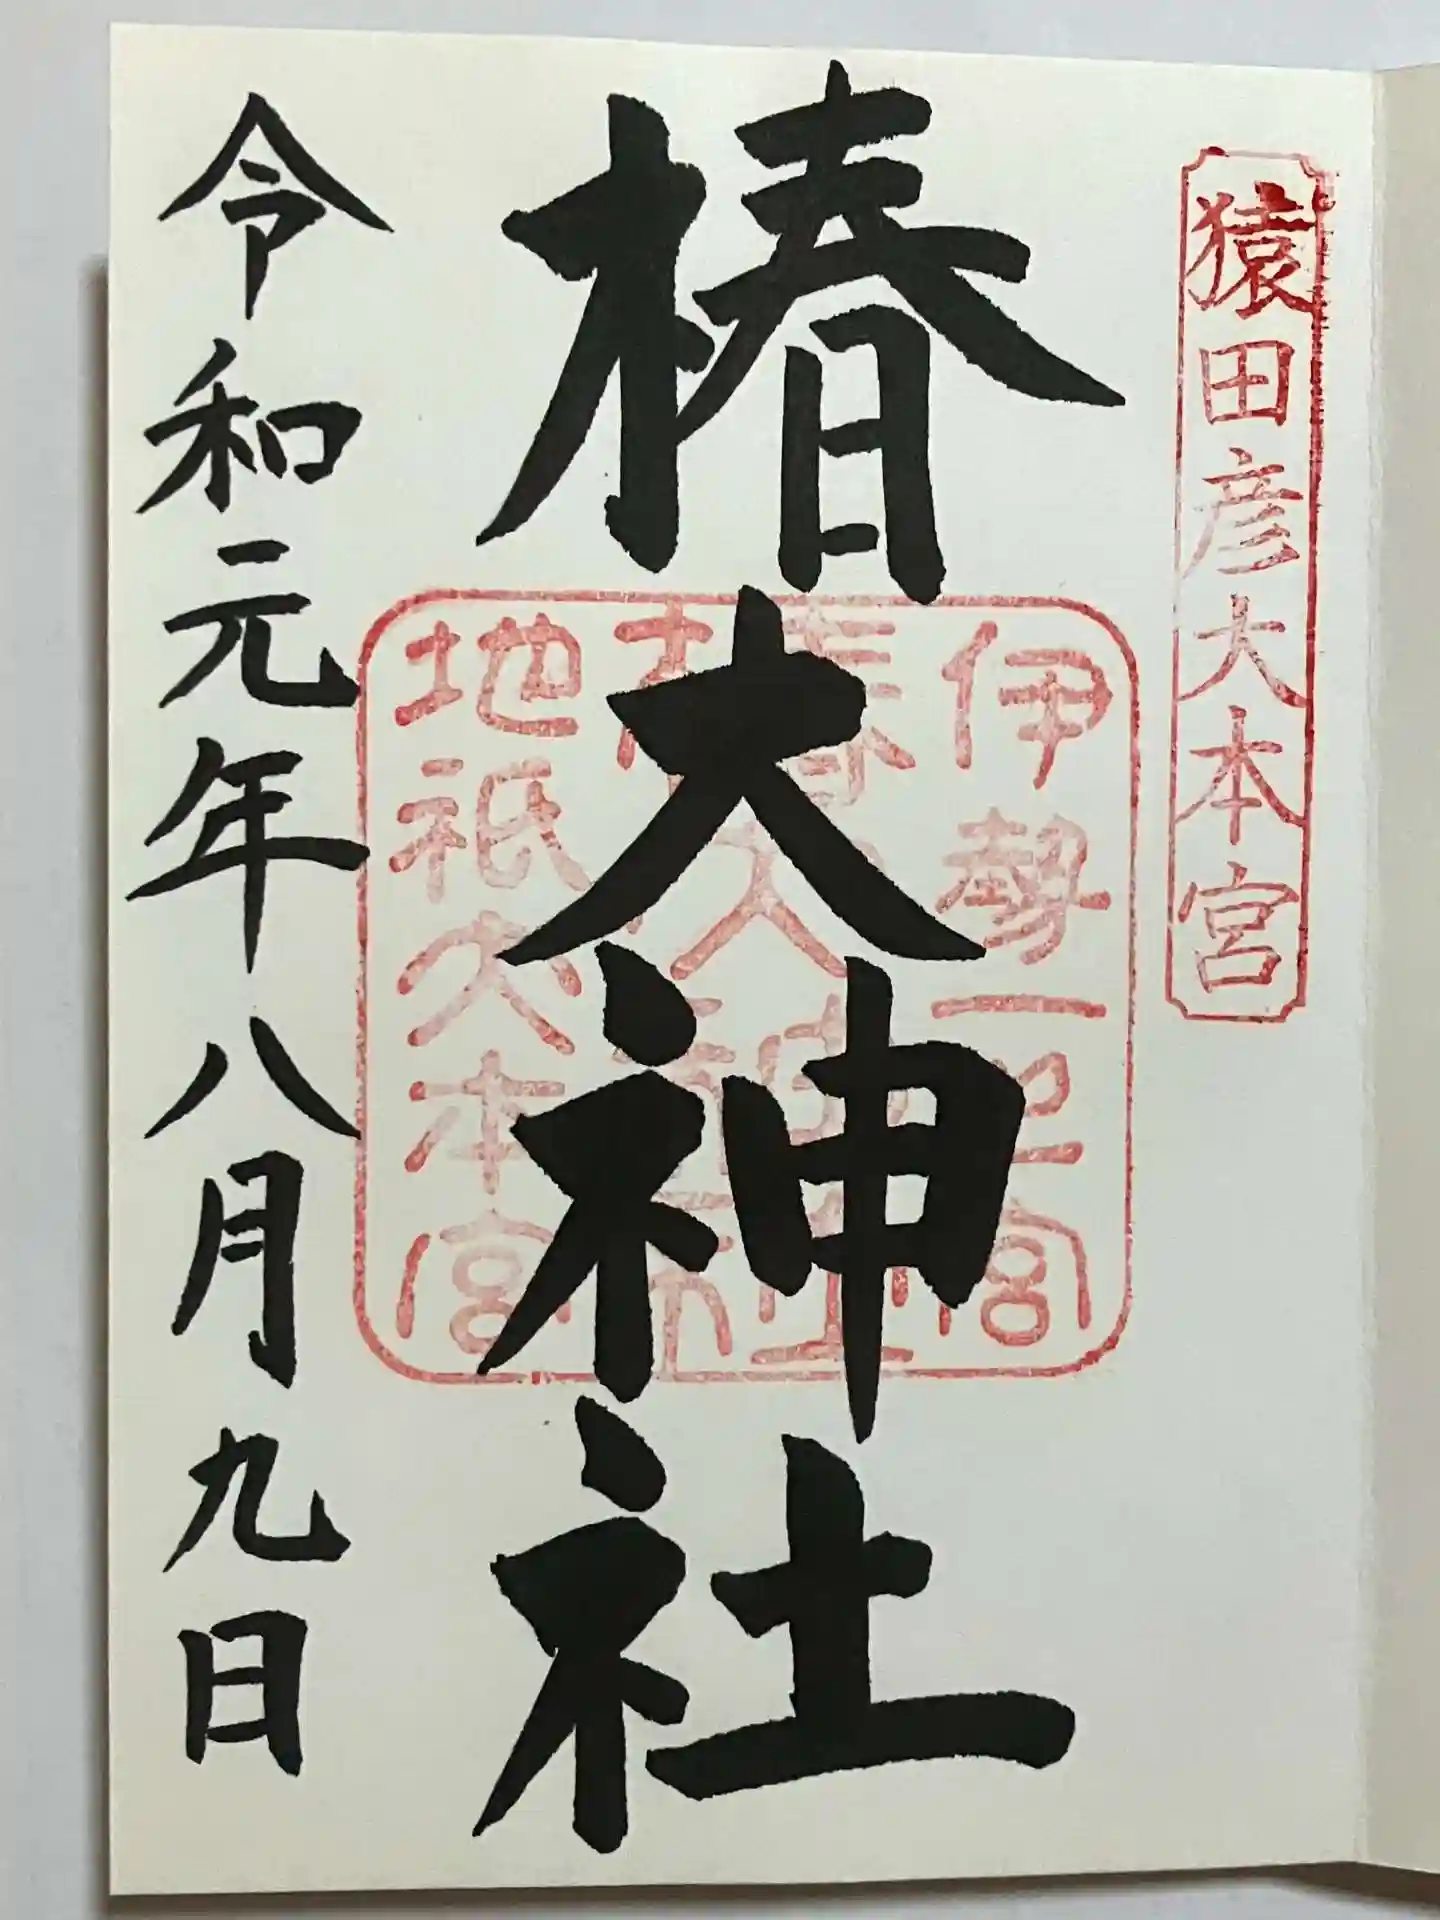 猿田彦大本宮
椿大神社
伊勢一之宮
椿大神社
地祇大本宮
令和元年八月九日